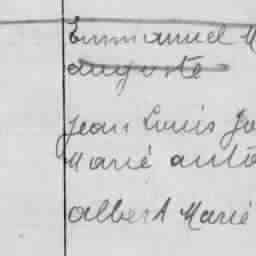 Emmanuel M
auguste
Jean Louis Jo
Marié anto
albert Marié